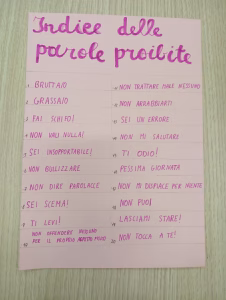 Indice delle
parole proibite
1. BRUTTA/O
2. GRASSA/O
3. FAI SCHIFO!
4. NON VALI NULLA!
5. SEI INSOPPORTABILE!
6. NON BULLIZZARE
7. NON DIRE PAROLACCE
8. SEI SCEMA!
9. TI LEVI!
NON OFFENDERE NESSUNO
PER IL PROPRIO
NON TRATTARE MALE NESSUNO
NON ARRABBIARSI
SEI UN ERRORE
NON MI SALUTARE
TI ODIO!
PESSIMA GIORNATA
NON MI DISPIACE PER NIENTE
NON PUOI
LASCIAMI STARE!
NON TOCCA A TE!